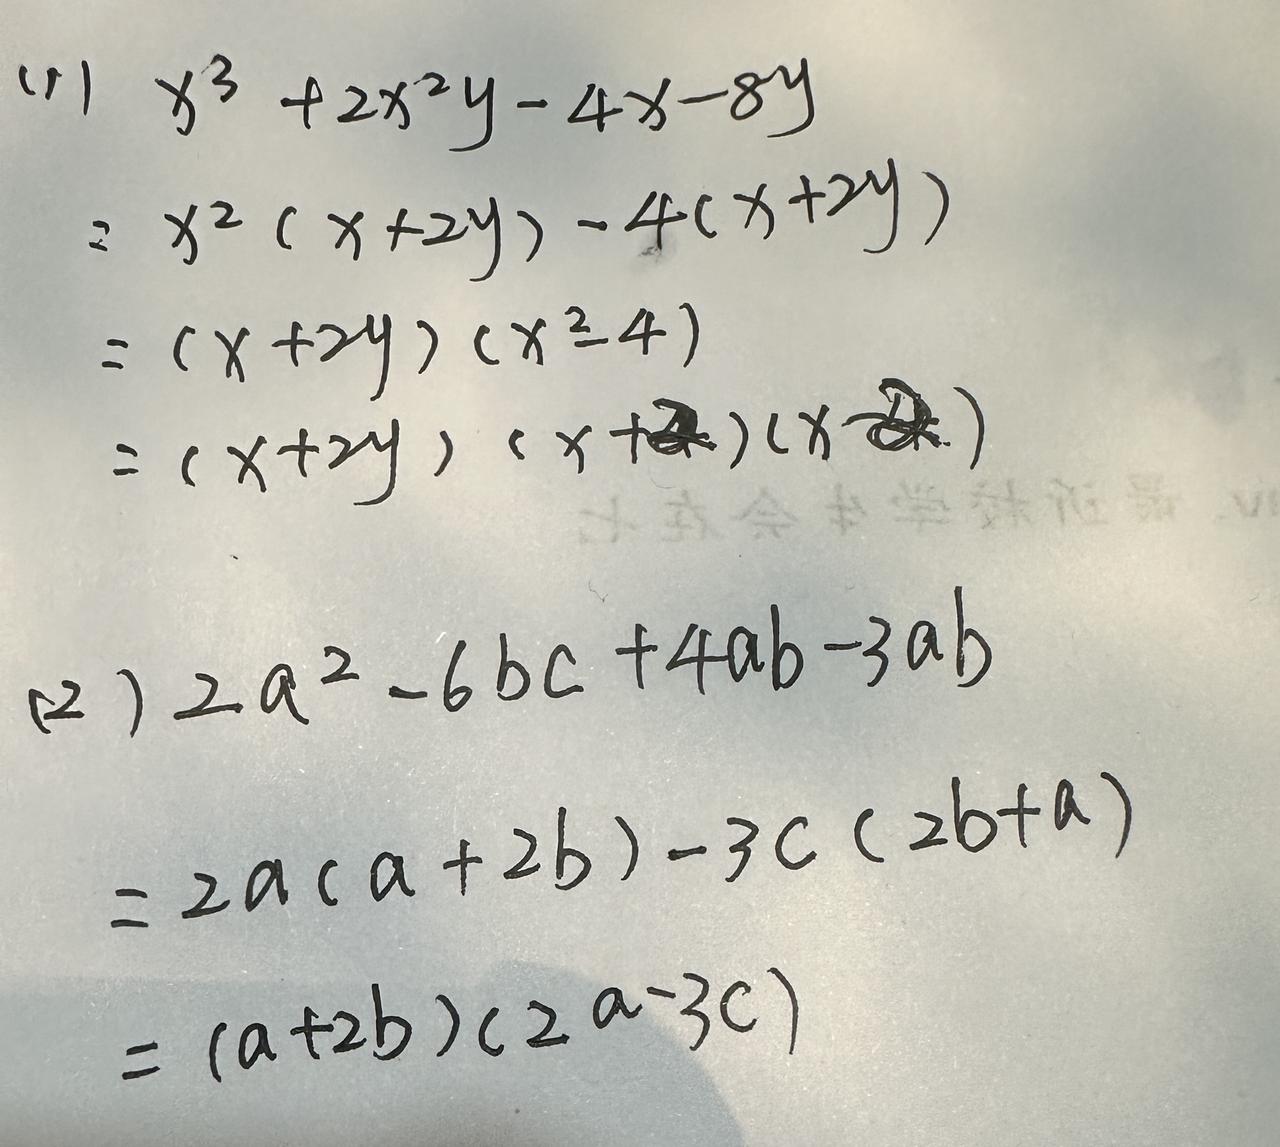 (1) x³ + 2x²y - 4x - 8y
= x² (x + 2y) - 4(x + 2y)
= (x + 2y) (x² - 4)
= (x + 2y) (x + 2) (x - 2)
iv. 最近校学生会在七
(2) 2a² - 6bc + 4ab - 3ab
= 2a(a + 2b) - 3c (2b + a)
= (a + 2b) (2a - 3c)